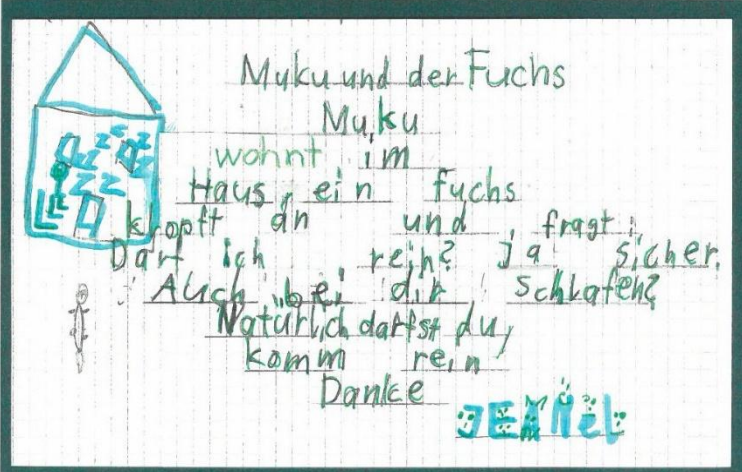 Muku und der Fuchs
Muku
wohnt im
Haus, ein fuchs
klopft an und fragt:
Darf ich rein? ja sicher.
Auch bei dir schlafen?
Natürlich darfst du,
komm rein
Danke